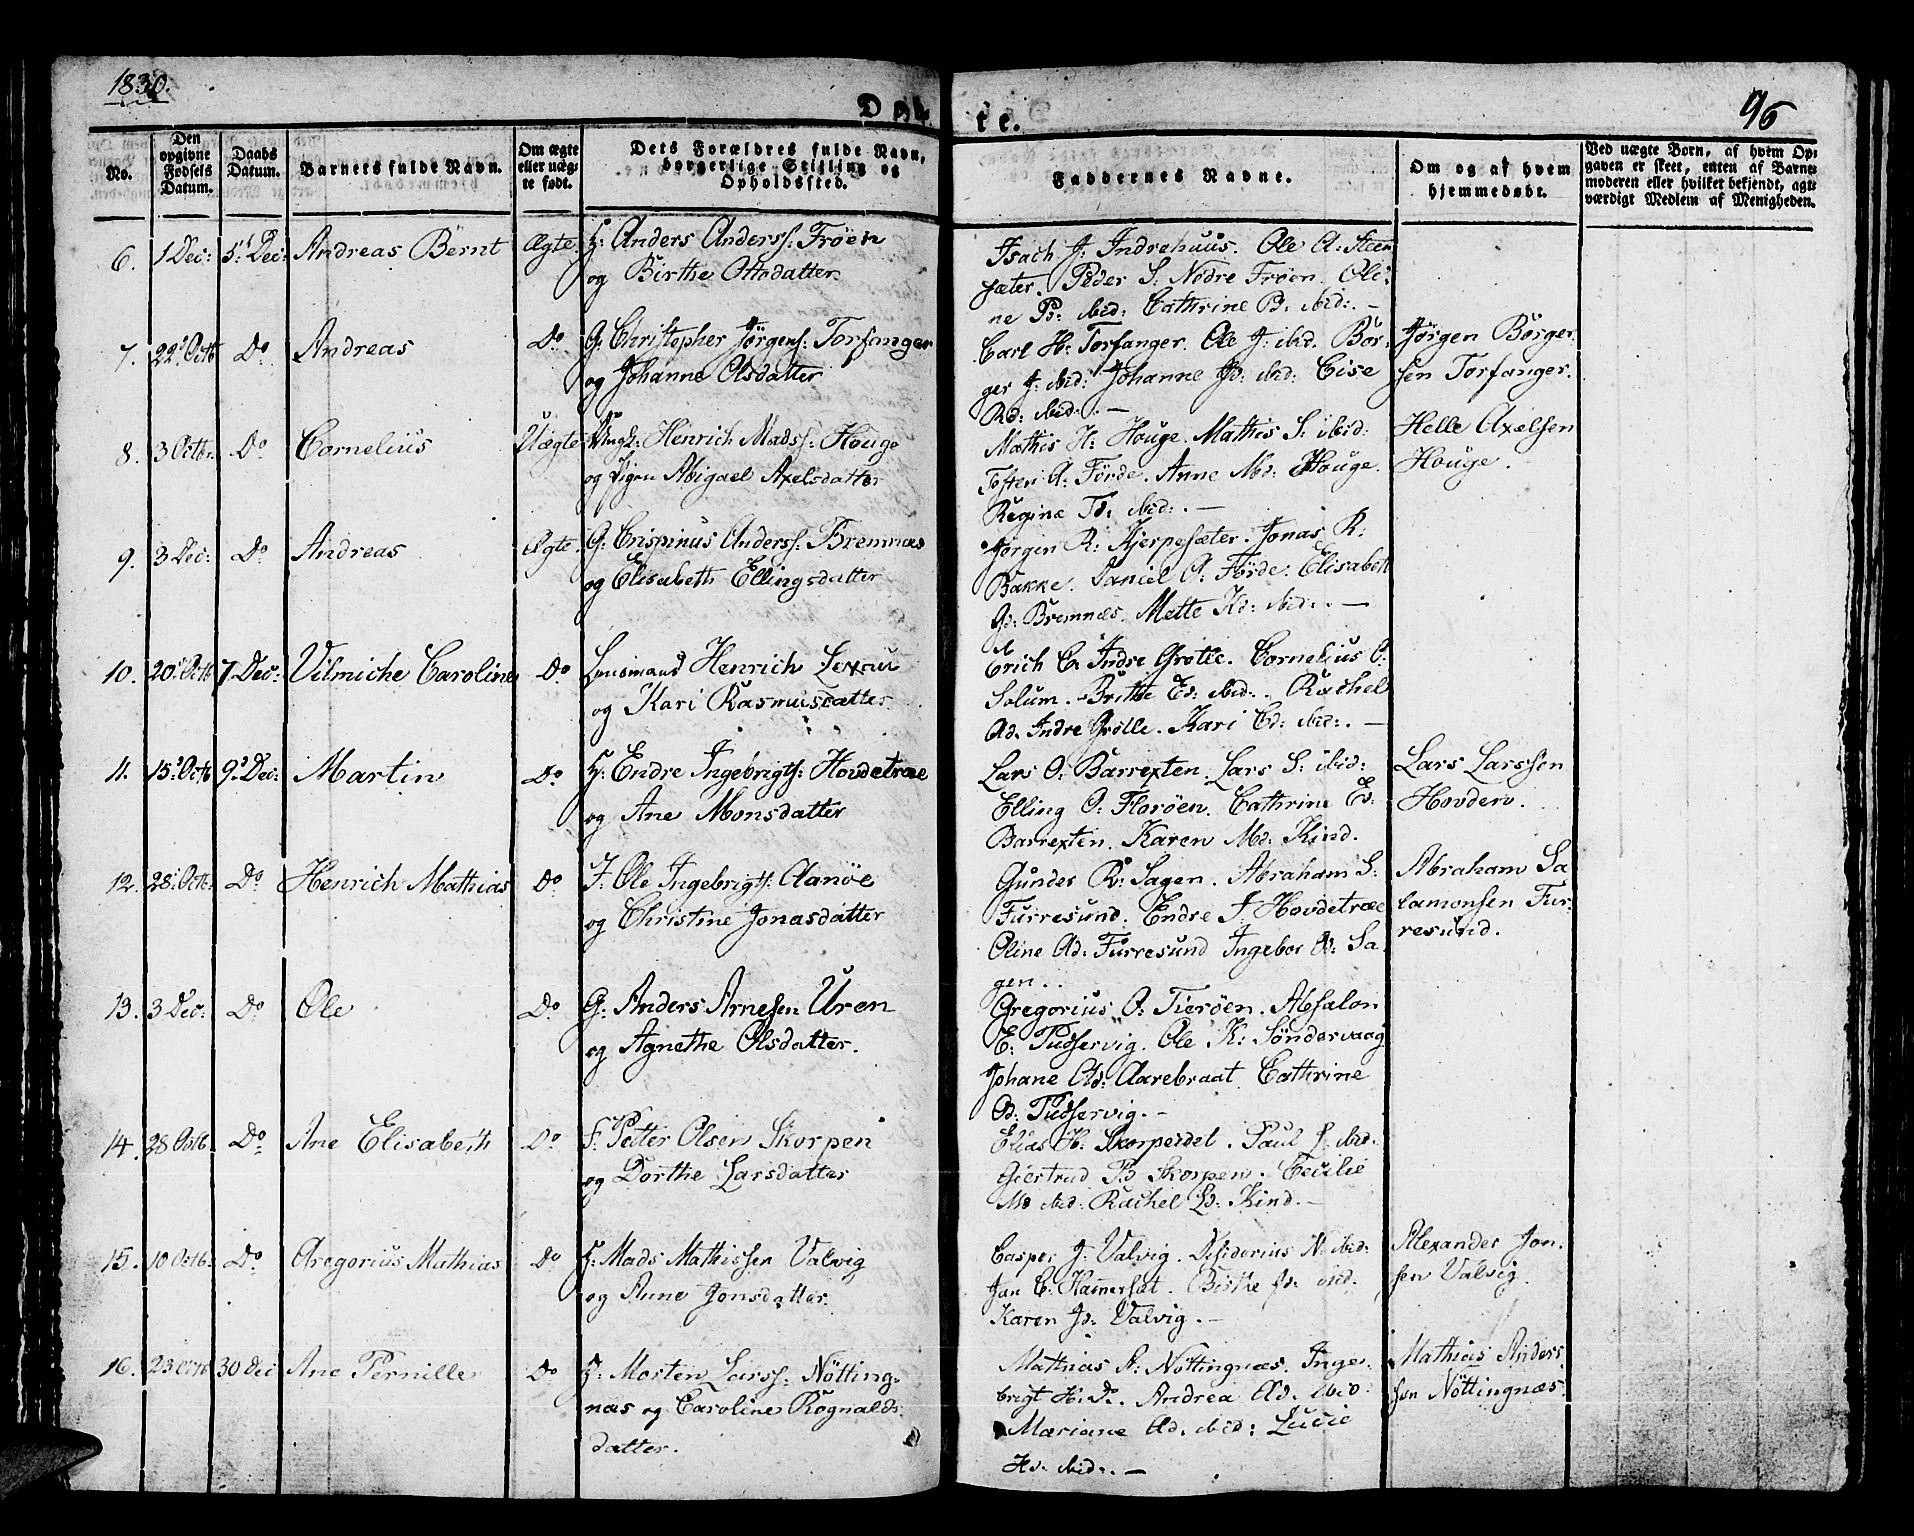 1830.
Døb
te.
96
No.
Den
opgivne
Fødsels
Datum.
Daabs
Datum.
Barnets fulde Navn.
Om ægte
eller uæg-
te født.
Dets Forældres fulde Navn,
borgerlige Stilling og
Opholdssted.
Faddernes Navne.
Om og af hvem
hjemmedøbt.
Ved uægte Børn, af hvem Op-
gaven er skeet, enten af Barne-
moderen eller hvilket bekjendt, agt-
værdigt Medlem af Menigheden.
6. 1 Dec: 5t Dec: Andreas Bernt Ægte. H: Anders Anderss: Fröen
og Birthe Ottosdatter
Isach J: Indrehuus. Ole A: Steen
sæter. Peder S: Nedre Fröen. Oli-
ne P: ibid: Cathrine B: ibid: —
7. 22 Octb Do Andreas Do G: Christopher Jörgens: Torfanger
og Johanne Olsdatter
Carl H: Torfanger. Ole J: ibid. Bör-
ger J: ibid: Johanne Jd: ibid: Cise
Rd: ibid: . —
Jörgen Börger
sen Torfanger.
8. 3 Octb: Do Cornelius Uægte Ungk: Henrich Madss: Houge
og Pigen Abigael Axelsdatter
Mathis H: Houge. Mathis S: ibid:
Tosten A: Förde. Anne Md: Houge.
Regine Td: ibid: . —
Helle Axelsen
Houge.
9. 3 Dec: Do Andreas Ægte. G: Crispinus Anderss: Bremnæs
og Elisabeth Ellingsdatter
Jörgen R: Kjerpesæter. Jonas R:
Bakke. Daniel A: Förde. Elisabeth
Gd: Bremnæs. Mette Kd: ibid: . —
10. 20 Octb 7 Dec: Vilmiche Caroline Do Lensmand Henrich Lexau
og Kari Rasmusdatter
Erich E: Indre Grotle. Cornelius O:
Solum. Britte Ed: ibid: . Rachel
Ad. Indre Grotle. Kari Ed: ibid: . —
11. 15 Octb 9 Dec: Martin Do H: Endre Ingebrigts: Hovdetræe
og Ane Monsdatter
Lars O: Barrexten. Lars S: ibid:
Elling O: Floröen. Cathrine Ed:
Barrexten. Karen Md: Kind.
Lars Larssen
Hovden.
12. 28 Octb: Do Henrich Mathias Do I: Ole Ingebrigts: Aanöe
og Christine Jonasdatter
Gunder R: Sagen. Abraham S:
Furresund. Endre J: Hovdetræe
Oline Ad: Furresund Ingebor Ad: Sa
gen..
Abraham Sa
lamonsen Fur-
resund.
13. 3 Dec: Do Ole Do G: Anders Arnesen Uren
og Agnethe Olsdatter.
Gregorius O: Tieröen. Absalon
E: Pudservig. Ole K: Söndervaag
Johane Ad: Aarebraat. Cathrine
Ad: Pudservig. —
14. 28 Octb. Do Ane Elisabeth Do S: Petter Olsen Skorpen
og Dorthe Larsdatter
Elias H: Skorpeidet. Paul J: ibid.
Giertrud Pd Skorpen. Cecilie
Md ibid: Rachel Ld: Kind. —
15. 10 Octb. Do Gregorius Mathias Do H: Mads Mathissen Valvig
og Anne Jonsdatter.
Casper J: Valvig. Desiderius N: ibid:
Jan C: Hamerset. Birthe Jd: ibid.
Karen Jd: Valvig. —
Alexander Jon-
sen Valvig.
16. 23 Octb 30 Dec Ane Pernille Do H: Morten Larss: Nötting-
næs og Caroline Rognalds
datter.
Mathias A: Nöttingnæs. Inge-
brigt H: Do. Andrea Ad. ibid:
Mariane Ad. ibid: Lucie
Hd: ibid: . —
Mathias Anders
sen Nöttingnæs.